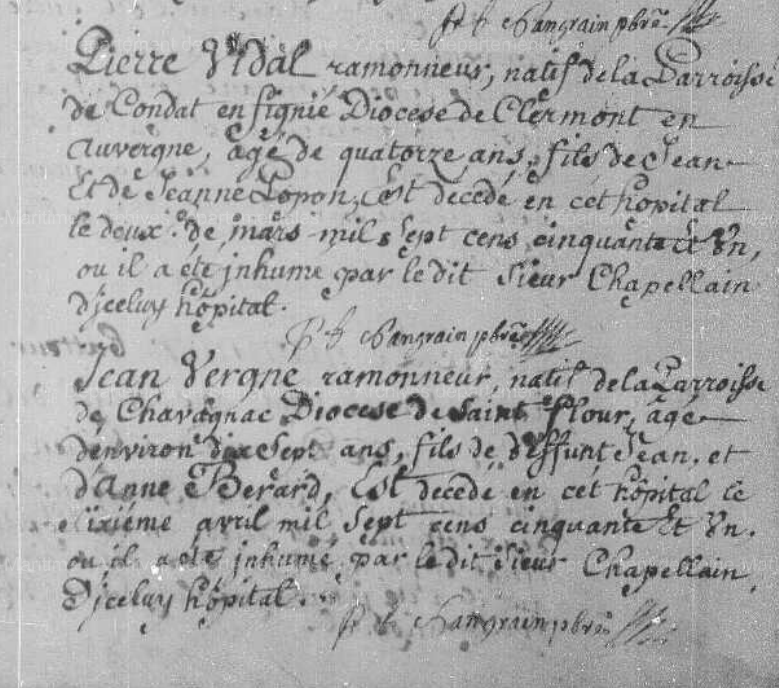 Sangrain pbrē
Pierre Vidal ramonneur, natif de la Parroisse
de Condat en fignié Diocese de Clermont en
auvergne, âgé de quatorze ans, fils de Jean
Et de Jeanne Lopon, Est decedé en cet hopital
le deux de mars mil sept cens cinquante Et Un,
ou il a été jnhumé par le dit Sieur Chapellain
D'jceluy hôpital.
Sangrain pbrē
Jean Vergne ramonneur, natif de la Parroisse
de Chavagnac Diocese de Saint flour, âgé
d'environ dix sept ans, fils de deffunt Jean, et
d'Anne Berard, Est decedé en cet hôpital le
avril mil sept cens cinquante Et Un.
ou il a été jnhumé par le dit Sieur Chapellain
D'jceluy hôpital.
Sangrain pbrē